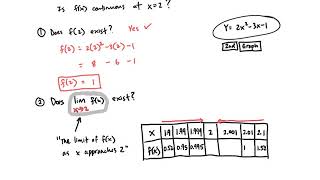 Is f(x) continuous at x=2 ?
① Does f(2) exist? Yes ✓
f(2) = 2(2)² -3(2) -1
= 8 - 6 - 1
f(2) = 1
Y= 2x²-3x-1
2nd Graph
② Does lim f(x) exist?
x→2
"The limit of f(x)
as x approaches 2"
x 1.9 1.99 1.999 2 2.001 2.01 2.1
f(x) 0.52 0.95 0.995 1 1.52